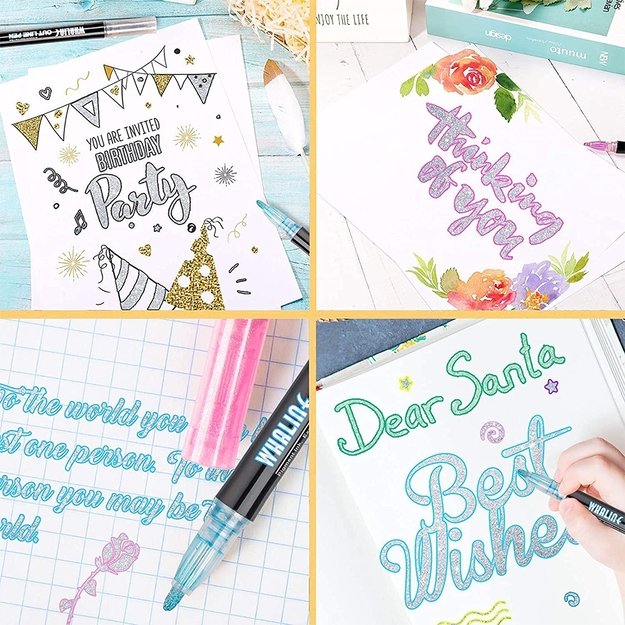 WHALINE OUT LINE PEN
YOU ARE INVITED
BIRTHDAY
Party
ENJOY THE LIFE
muuto
design
NEW
thinking
of you
To the world you
one person. To
person you may be
world.
WHALINE
Dear Santa
Best
Wishes
WHALINE